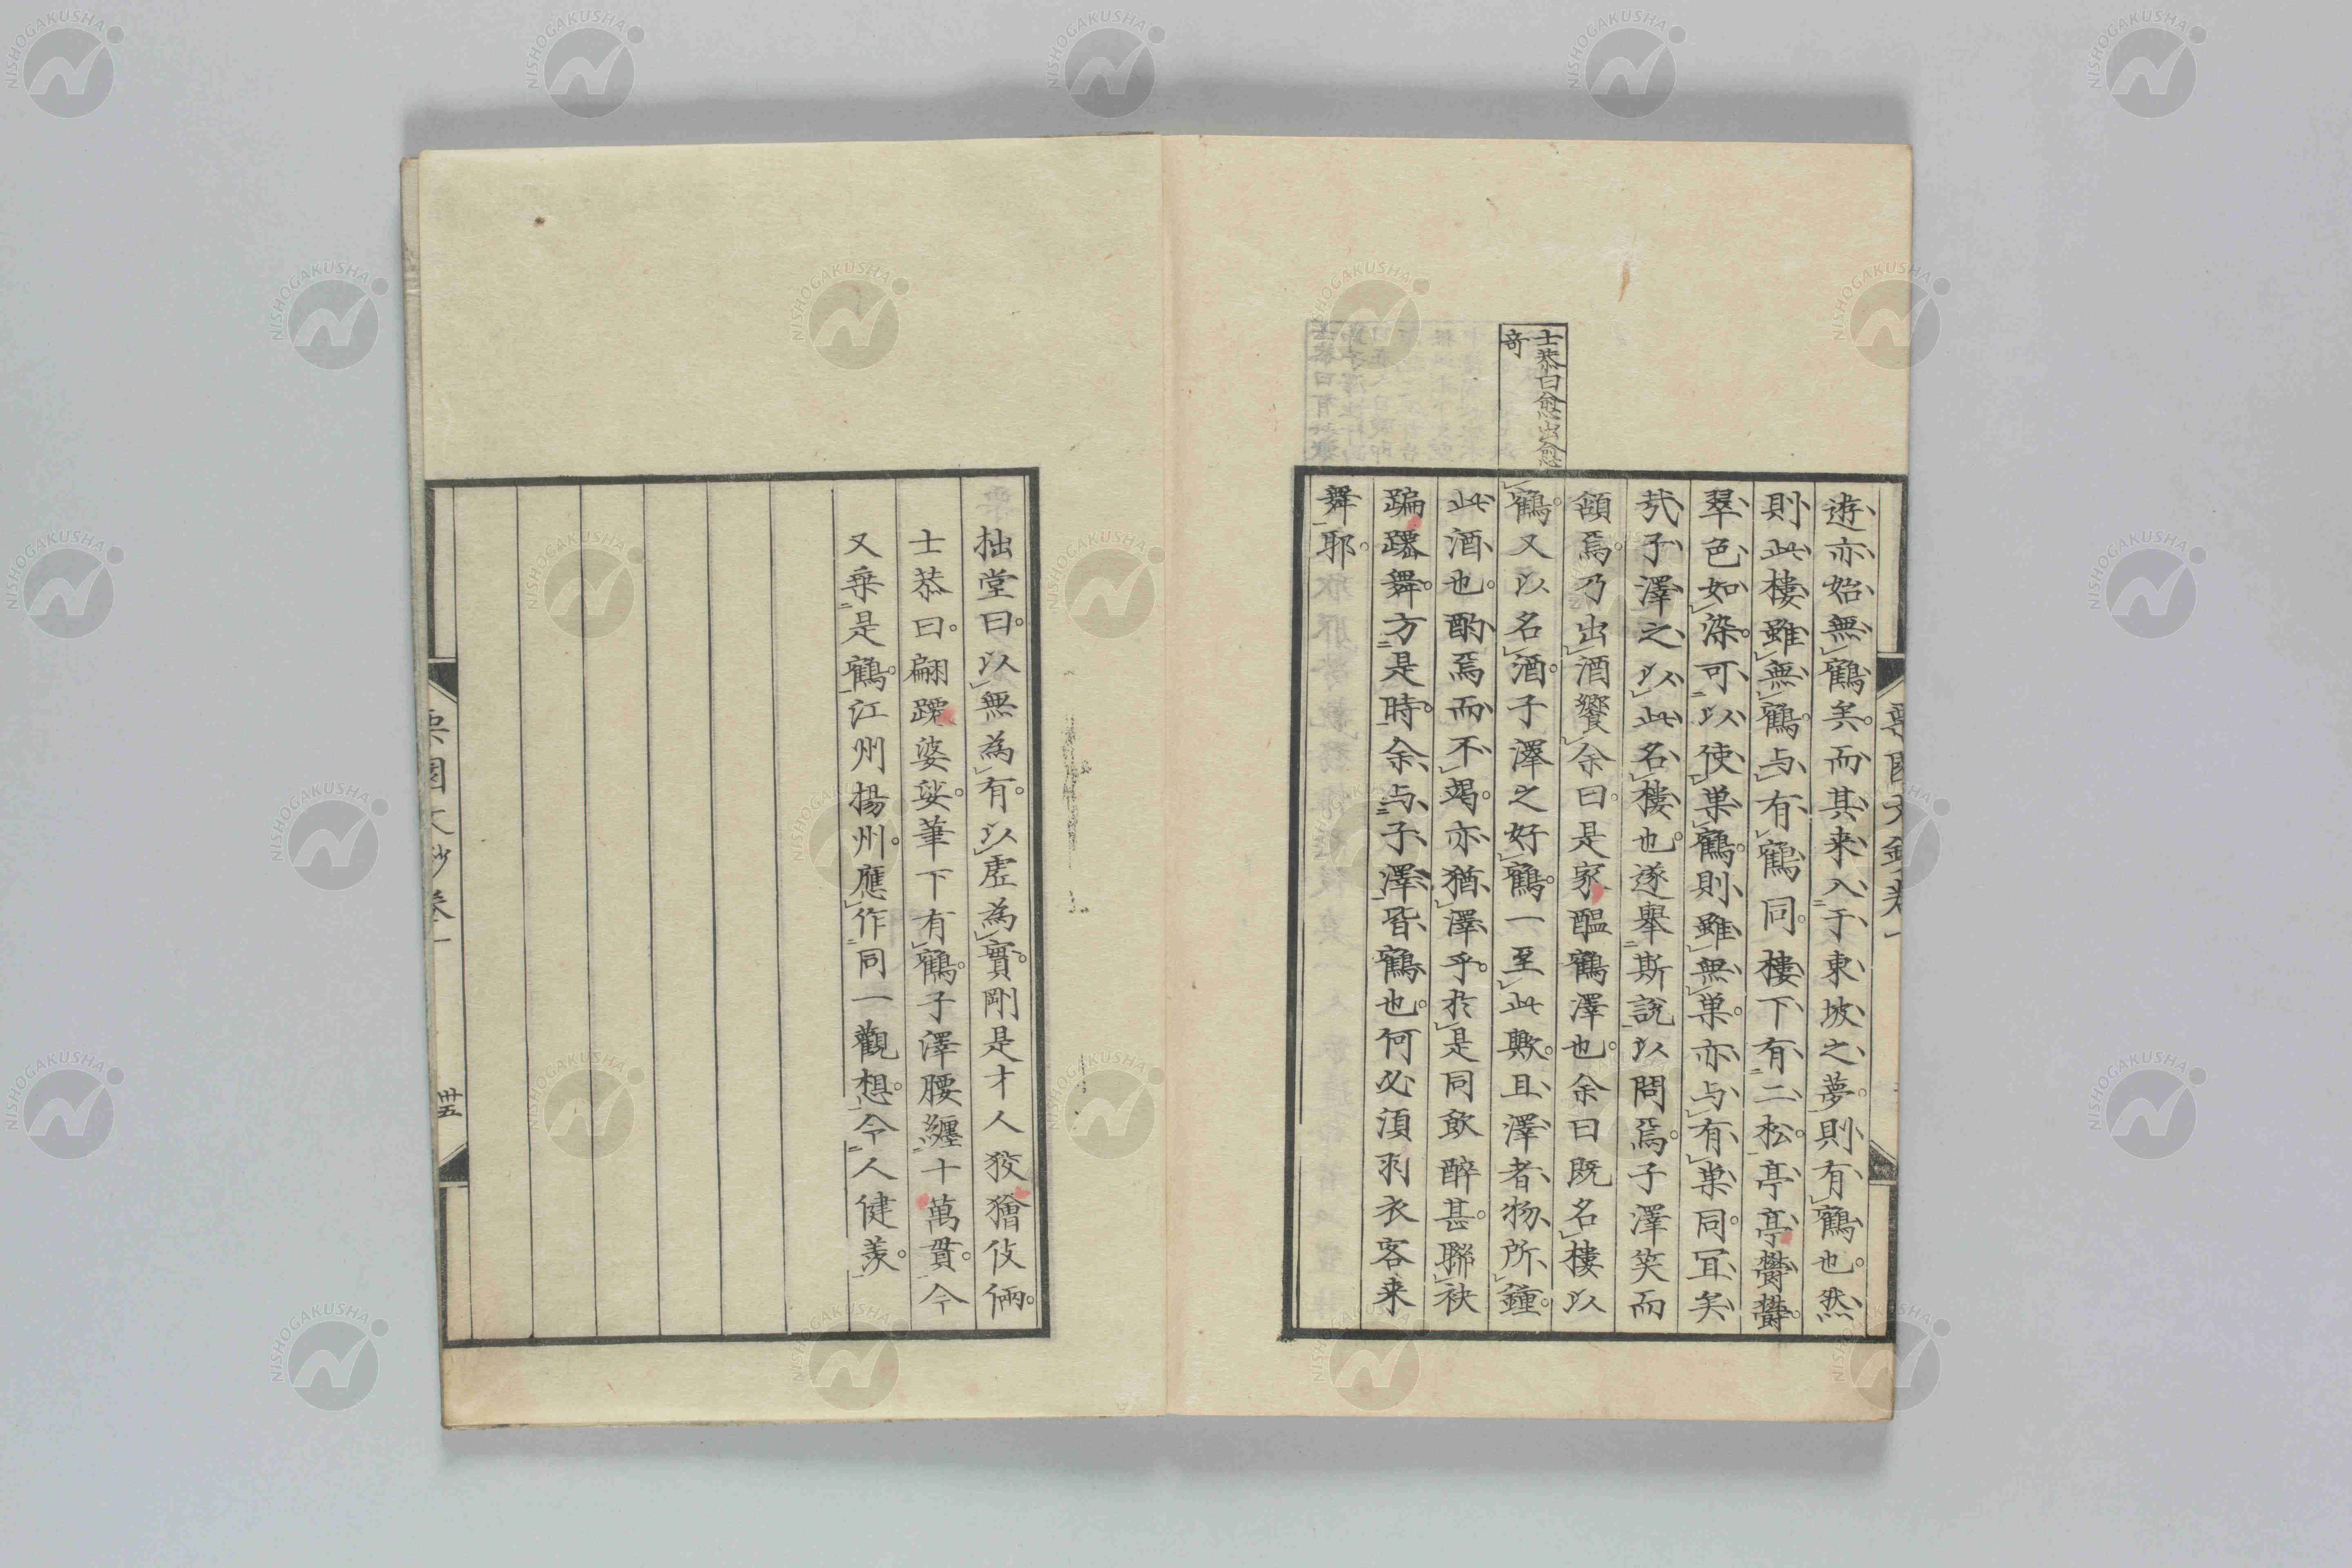 士恭曰愈出愈
奇
遊亦始無鶴矣而其来入于東坡之夢則有鶴也然
則此樓雖無鶴与有鶴同樓下有二松亭亭鬱鬱
翠色如染可以使巣鶴則雖無巣亦与有巣同冝矣
㢤子澤之以此名樓也遂舉斯說以問焉子澤笑而
頷焉乃出酒饗余曰是家醞鶴澤也余曰既名樓以
鶴又以名酒子澤之好鶴一至此歟且澤者物所鍾
此酒也酌焉而不竭亦猶澤乎於是同飲醉甚聯袂
蹁躚舞方是時余与子澤皆鶴也何必湏羽衣客来
舞耶
拙堂曰以無為有以虛為實剛是才人狡獪伎倆
士恭曰翩躚婆娑筆下有鶴子澤腰纏十萬貫今
又乗是鶴江州揚州應作同一觀想令人健羨
卅五
NISHOGAKUSHA